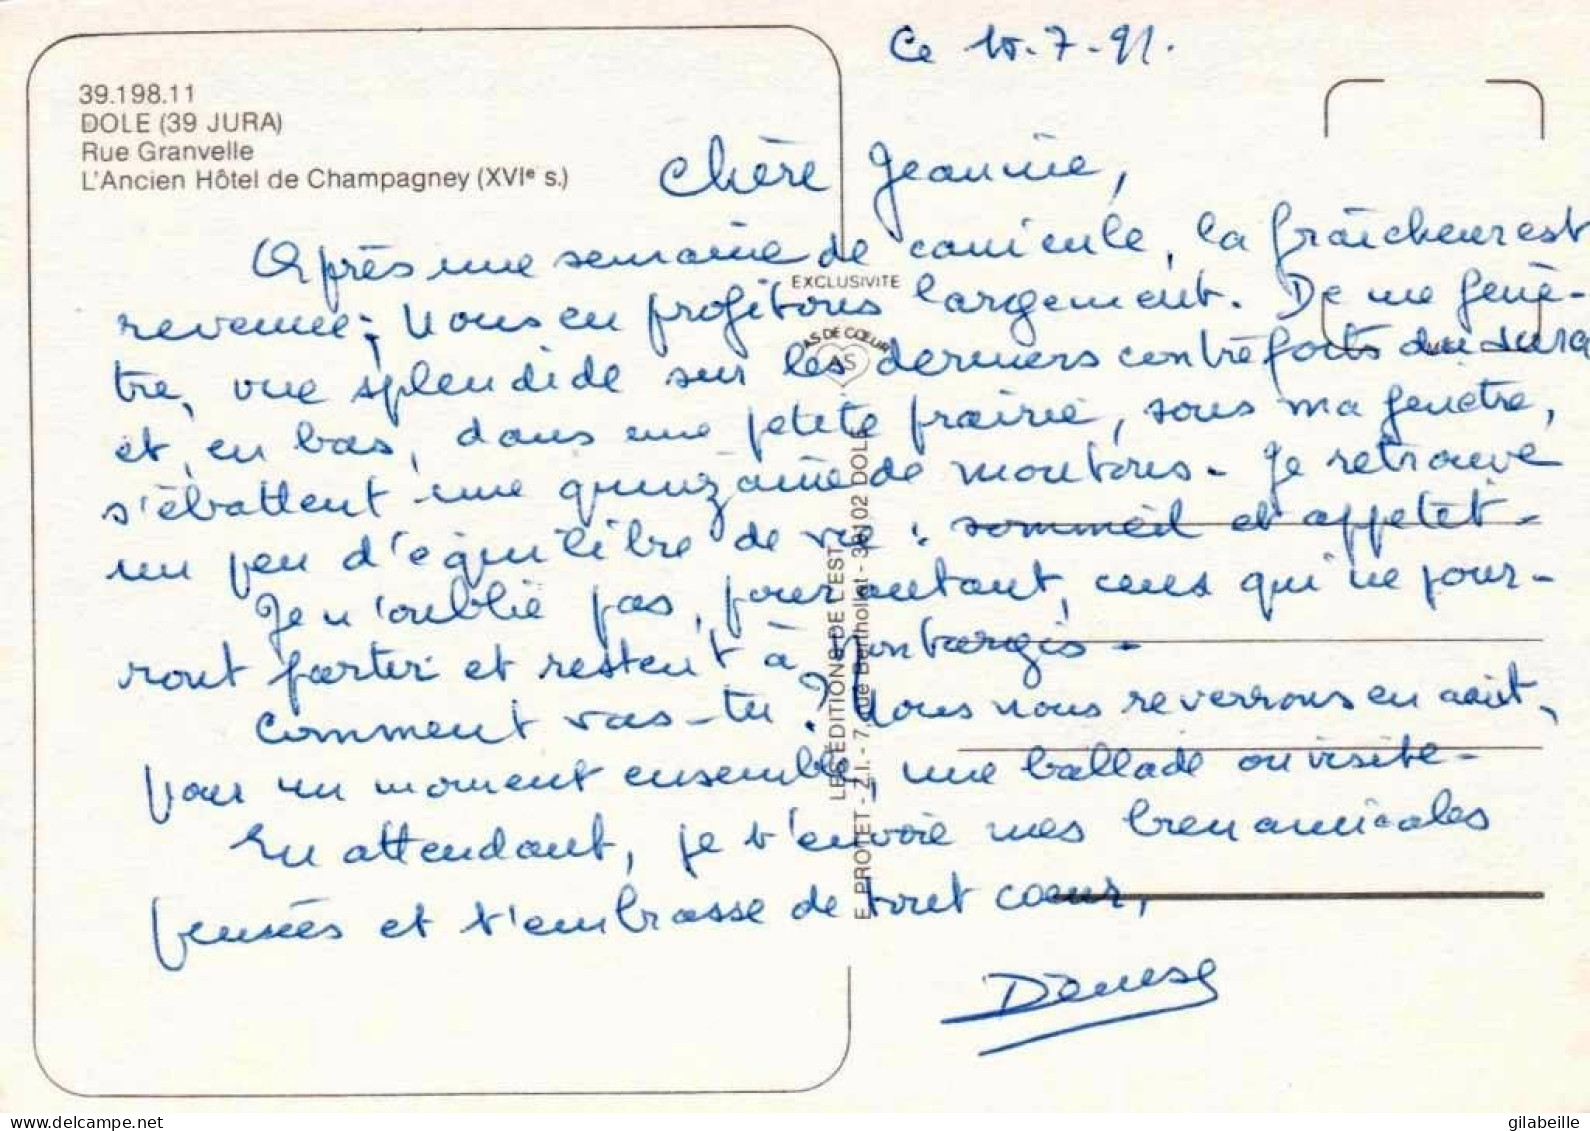 Ce 10-7-91.
39.198.11
DOLE (39 JURA)
Rue Granvelle
L'Ancien Hôtel de Champagney (XVIe s.)
Chère Jeannine,
Après une semaine de canicule, la fraîcheur est
revenue; nous en profitons largement. De ma fenê-
tre, vue splendide sur les derniers contreforts du Jura
et, en bas, dans une petite prairie, sous ma fenêtre,
s'ébattent une quinzaine de moutons. Je retrouve
un peu d'équilibre de vie : sommeil et appétit.
Je n'oublie pas, pour autant, ceux qui ne pour-
ront partir et restent à Montargis.
Comment vas-tu ? Nous nous reverrons en août,
pour un moment ensemble, une ballade ou visite.
En attendant, je t'envoie mes bien amicales
pensées et t'embrasse de tout coeur,
Denise
EXCLUSIVITE
AS DE CŒUR
AS
LES EDITIONS DE L'EST
E. PROTET - Z.I. - 7, rue Berthollet - 39102 DOLE
gilabeille